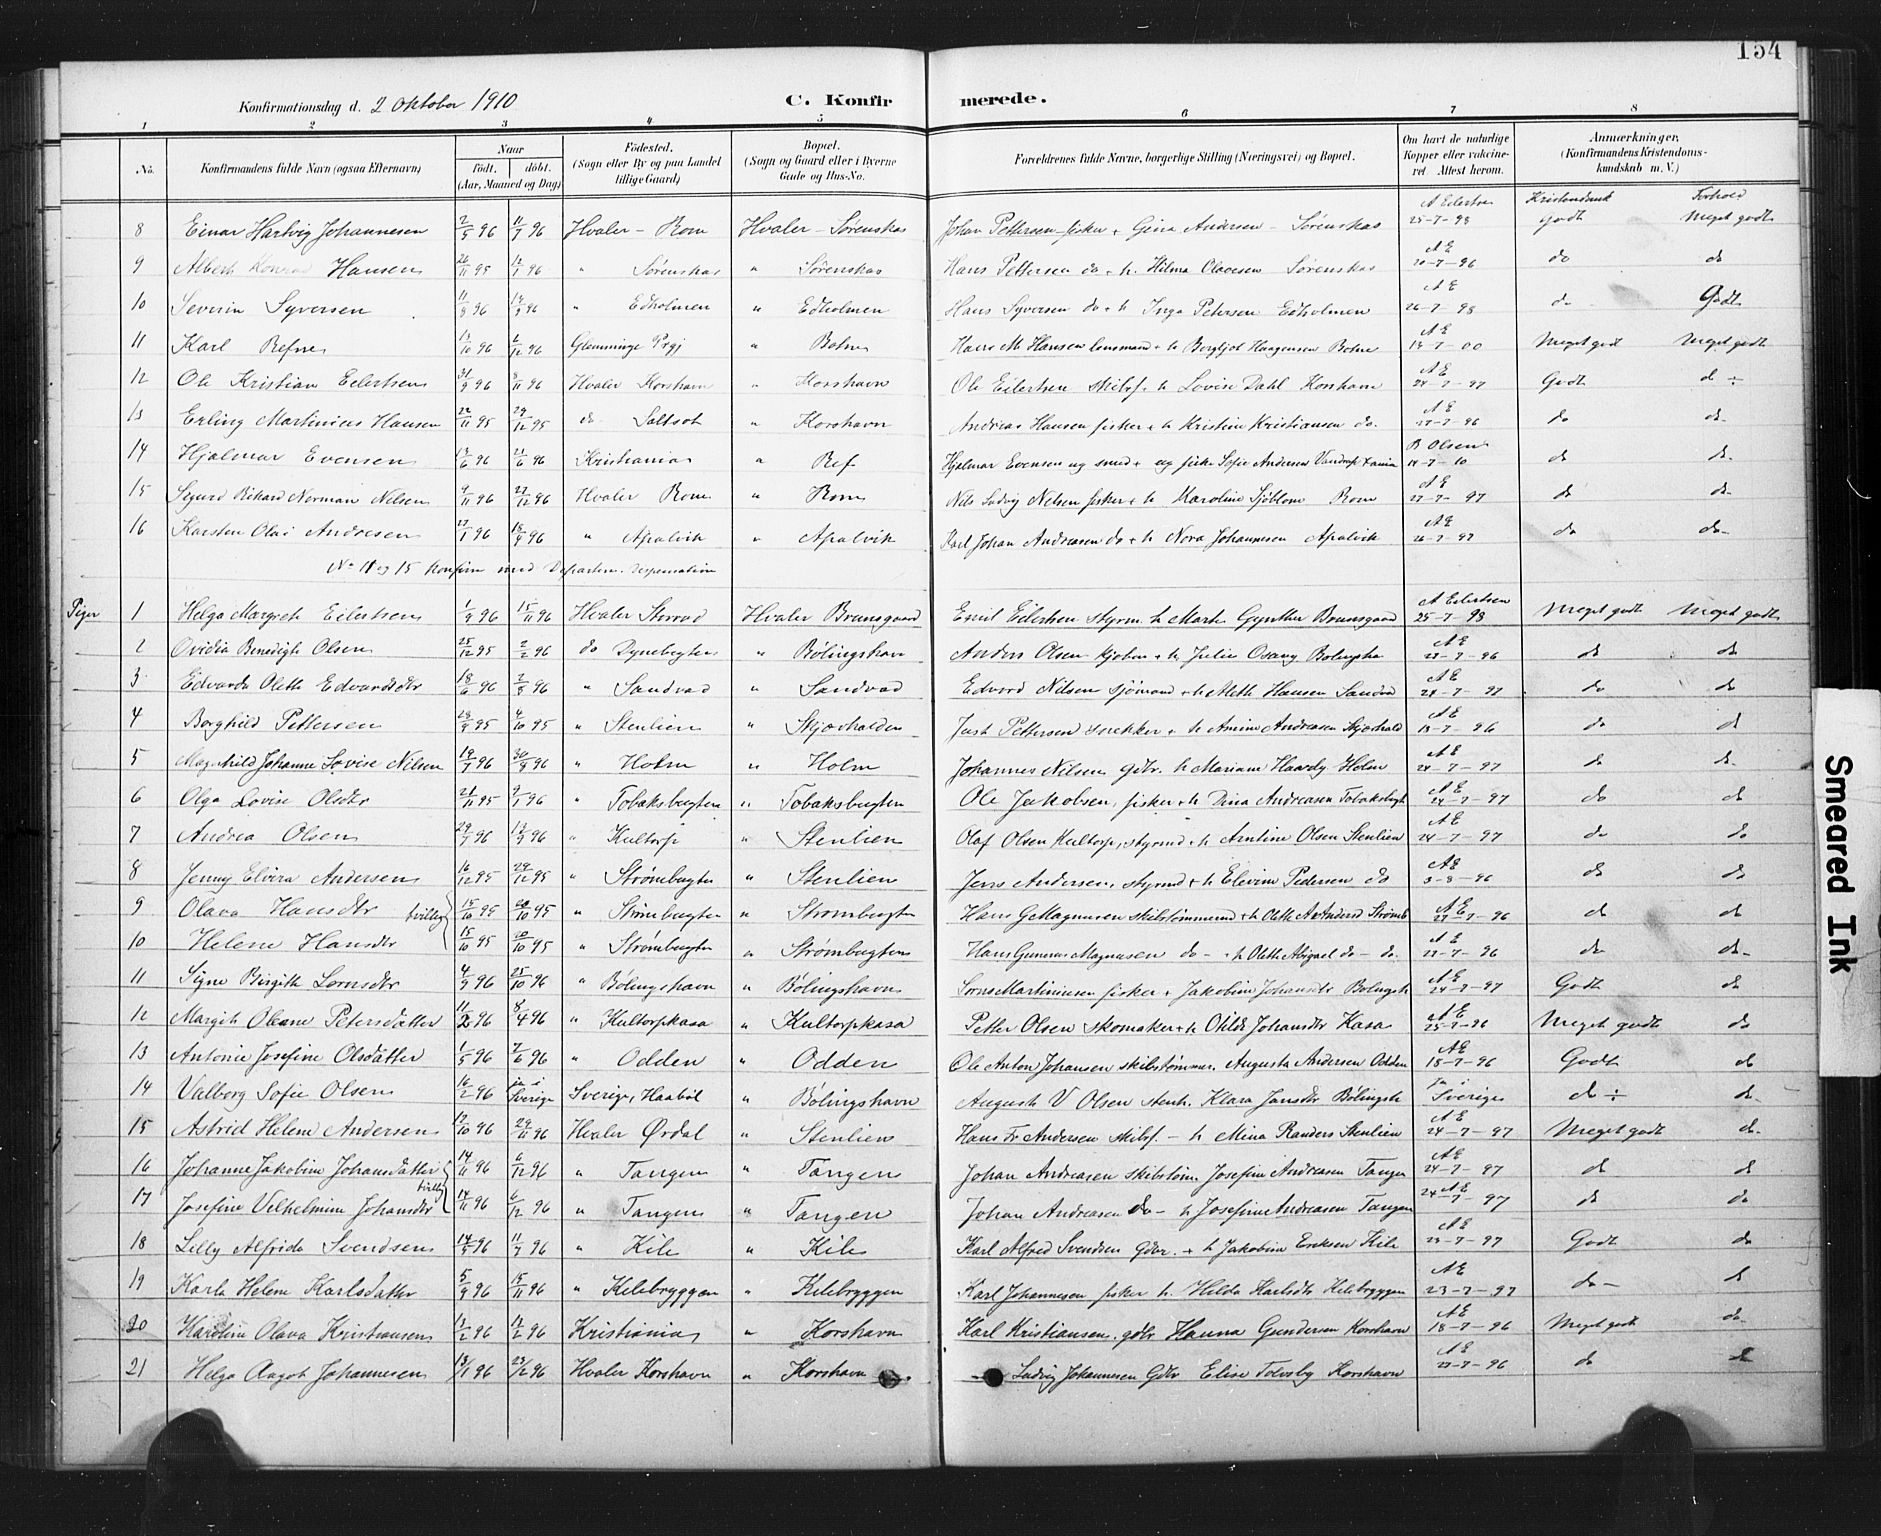 154
Konfirmationsdag d. 2 Oktober 1910 C. Konfir merede.
1 2 3 4 5 6 7 8
No. Konfirmandens fulde Navn (ogsaa Efternavn) Naar født. døbt. (Aar, Maaned og Dag) Fødested. (Sogn eller By og paa Landet tillige Gaard) Bopæl. (Sogn og Gaard eller i Byerne Gade og Hus-No. Forældrenes fulde Navne, borgerlige Stilling (Næringsvei) og Bopæl. Om havt de naturlige Kopper eller vaccineret. Attest herom. Anmærkninger, (Konfirmandens Kristendomskundskab m. V.)
Kristendomsk Forhold
8 Einar Hartvig Johannesen 2/5 96 11/7 96 Hvaler - Rom Hvaler - Sørenskas Johan Pettersen fisker + Gina Andersen - Sørenskas A Eilertsen 25-7-98 godt meget godt
9 Albert Konrad Hansen 26/11 95 12/1 96 " Sørenskas " Sørenskas Hans Pettersen do + h. Hilma Olavesen Sørenskas A E 20-7-96 do do
10 Severin Syversen 11/8 96 " Edholmen " Edholmen Hans Syversen do + h Inga Petersen Edholmen A E 26-7-98 do Godt
11 Karl Refne 13/10 96 6/12 96 Glemminge Prgj " Botne Hans M. Hansen lensmand + h Borgljot Haagensen Botne A E 19-7-00 Meget godt Meget godt
12 Ole Kristian Eilertsen 9 96 8/11 96 Hvaler Korshavn " Korshavn Ole Eilertsen skibsf. + h Lovise Dahl Korshavn A E 24-7-97 Godt do ÷
13 Erling Martinius Hansen 22/11 95 29/12 95 do Saltsot " Korshavn Andreas Hansen fisker + h Kristine Kristiansen do. A E 27-7-96 do do
14 Hjalmar Evensen 6 96 21/6 96 Kristiania " Ref Hjalmar Evensen ug smed + ug pike Sofie Andersen B Olsen 14-7-10 do do
15 Sigurd Rikard Norman Nilsen 9/11 96 27/12 96 Hvaler Rom " Rom Nils Ludvig Nilsen fisker + h Karoline Sjöblom Rom A E 27-7-97 do do
16 Karsten Olai Andresen 27/1 96 18/9 96 " Apalvik " Apalvik Karl Johan Andreasen do + h Nora Johannesen Apalvik A E 26-7-97 do do
No 11 og 15 konfirm med Departem. dispensation
Piger 1 Helga Margreth Eilertsen 1/9 96 15/11 96 Hvaler Storrød Hvaler Brunsgaard Emil Eilertsen styrm. h Marth Gynther Brunsgaard A Eilertsen 25-7-98 Meget godt Meget godt
2 Ovidia Benedigte Olsen 25/12 95 2/2 96 do Dynebugten " Bölingshavn Anders Olsen kjøbm + h Julie Osang Bölingsha A E 27-7-96 do do
3 Edvarda Oleth Edvardsdtr 18/6 96 2/8 96 " Sandvad " Sandvad Edvard Nilsen sjömand + h Meth Hansen Sandvad A E 24-7-97 do do
4 Borghild Pettersen 28/9 95 10 95 " Stenlien " Skjærhalden Just Pettersen snekker + h Amine Andreasen Skjærhald A E 18-7-96 do do
5 Magnhild Johanne Lovise Nilsen 19/7 96 30/8 96 " Holm " Holm Johannes Nilsen gdbr. h Mariane Haarby Holm A E 24-7-97 do do
6 Olga Lovise Olsdtr 21/11 95 1 96 " Tobaksbugten " Tobaksbugten Ole Jakobsen, fisker + h Dina Andreasen Tobaksbugt A E 24-7-97 do do
7 Andrea Olsen 29/7 96 9 96 " Kultorp " Stenlien Olaf Olsen Kultorp, styrmd + h Antine Olsen Stenlien A E 24-7-97 do do
8 Jenny Elvira Andersen 16/12 95 29/12 95 " Strömbugten " Stenlien Jens Andersen, styrmd + h Elevine Pedersen do A E 3-8-96 do do
9 Olava Hansdtr tvilling 15/10 95 20/10 95 " Strömbugten " Strömbugten Hans G Magnusen skibstømmermd + h Oleth A Andersd Strömb A E 27-7-96 do do
10 Helene Hansdtr 15/10 95 20/10 95 " Strömbugten " Strömbugten Hans Gunerius Magnusen do - + h Oleth Abigael do - do. A E 27-7-96 do do
11 Signe Birgithe Lornsdtr 4/9 96 25/10 96 " Bölingshavn " Bölingshavn Lorns Martiniusen fisker + Jakobine Johansdtr Bölingsh A E 24-7-97 Godt do
12 Margith Oleane Petersdatter 11/2 96 8/4 96 " Kultorpkasa " Kultorpkasa Petter Olsen skomaker + h Otilde Johansdtr Kasa A E 25-7-96 Meget godt do
13 Antonie Josefine Olsdatter 1/5 96 7/6 96 " Odden " Odden Ole Anton Johansen skibstømmer. Augusta Andersen Odden A E 18-7-96 Godt do
14 Valborg Sofie Olsen 16/2 96 ja i Sverige Sverige, Haaböl " Bölingshavn August V Olsen stenh. Klara Jansdtr Bölingsh Ja i Sverige do ÷ do
15 Astrid Helene Andersen 12/10 96 29/11 96 Hvaler Ørdal " Stenlien Hans Fr Andersen skibsf. - h Mina Randers Stenlien A E 24-7-97 Meget godt do
16 Johanne Jakobine Johansdatter tvilling 14/11 96 6/12 96 " Tangen " Tangen Johan Andreasen skibstöm. Josefine Andreasen Tangen A E 24-7-97 do do
17 Josefine Vilhelmine Johansdtr 14/11 96 6/12 96 " Tangen " Tangen Johan Andreasen do - h Josefine Andreasen Tangen A E 24-7-97 do do
18 Lilly Alfrida Svendsen 14/5 96 11/7 96 " Kile " Kile Karl Alfred Svendsen gdbr. + h Jakobine Eriksen Kile A E 23-7-97 Godt do
19 Karla Helene Karlsdatter 5/9 96 15/11 96 " Kilebryggen " Kilebryggen Karl Johannesen fisker h. Hilda Karlsdtr Kilebryggen A E 23-7-97 do - do
20 Karoline Olava Kristiansen 2 96 2 96 Kristiania " Korshavn Karl Kristiansen. gdbr Hanna Gundersen Korshavn A E 18-7-96 Meget godt do
21 Helga Aagot Johannesen 13/1 96 23/2 96 Hvaler Korshavn " Korshavn Ludvig Johannesen Gdbr Elise Torsby Korshavn A E 27-7-96 do do
Smeared Ink